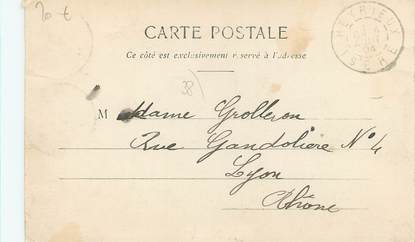 20 €
CARTE POSTALE
Ce côté est exclusivement réservé à l'adresse
38)
HEYRIEUX
04
ISÈRE
Madame Grolleron
Rue Gandolière N° 4
Lyon
Rhône